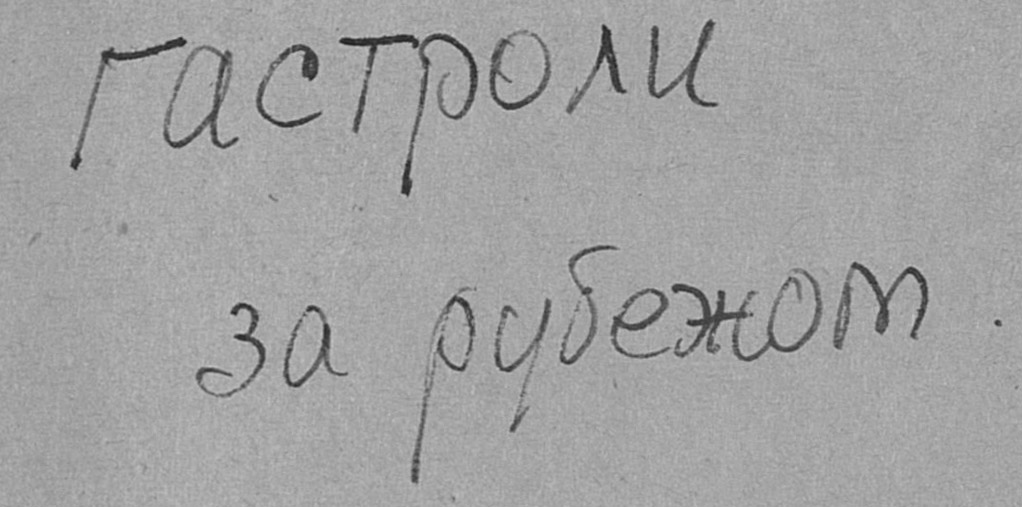 гастроли
за рубежом.